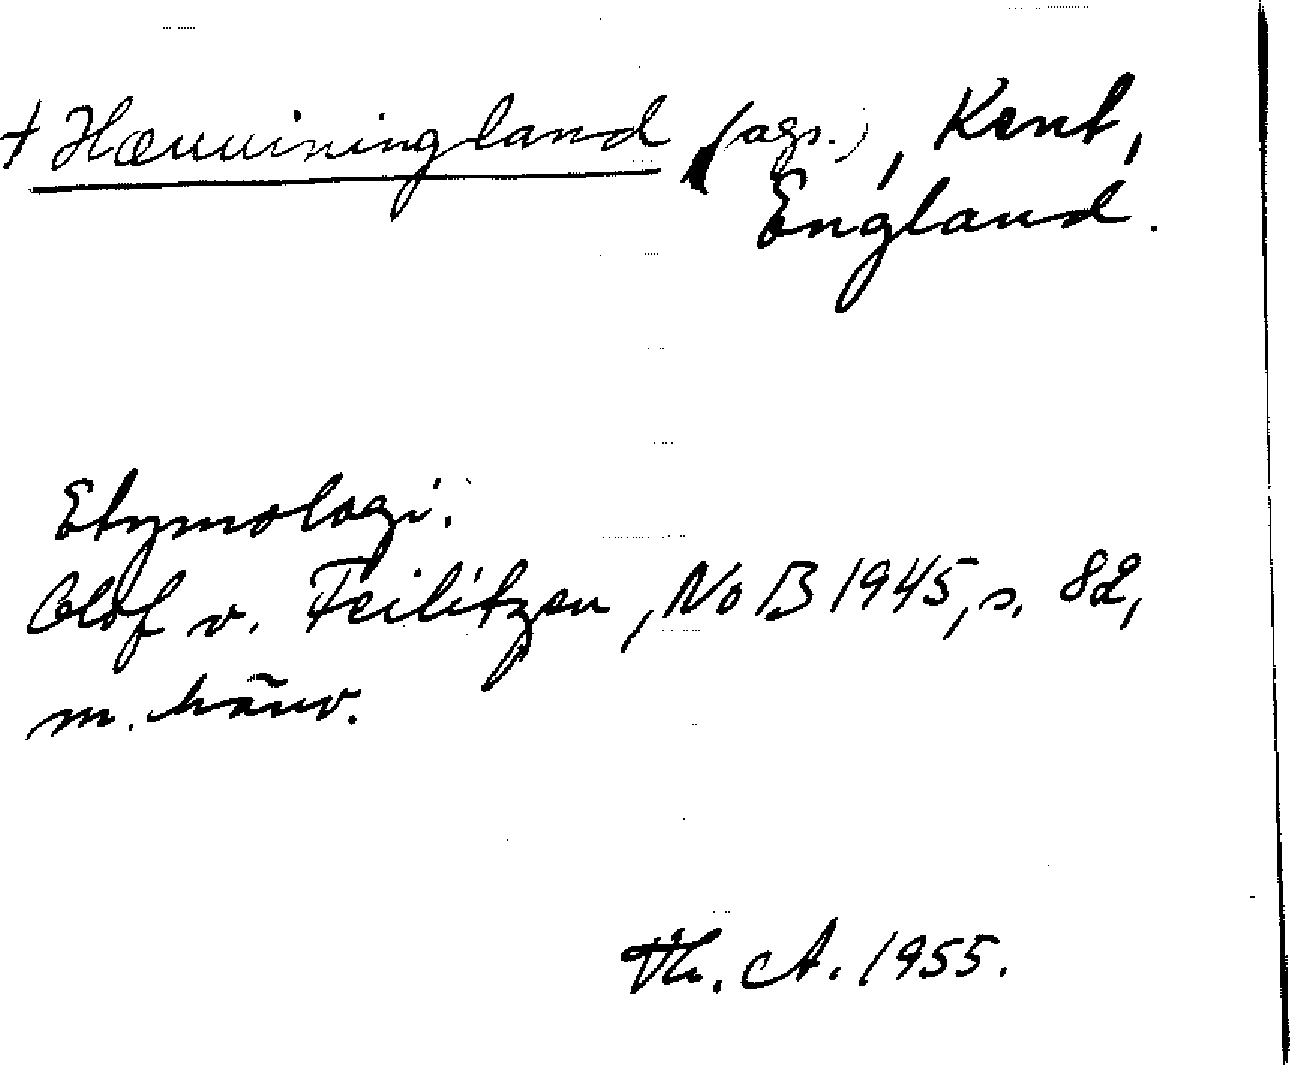 + Hæuuiningland (ags.), Kent,
England.
Etymologi.
Olof v. Feilitzen, NoB 1945, s. 82,
m. hänv.
Th. A. 1955.